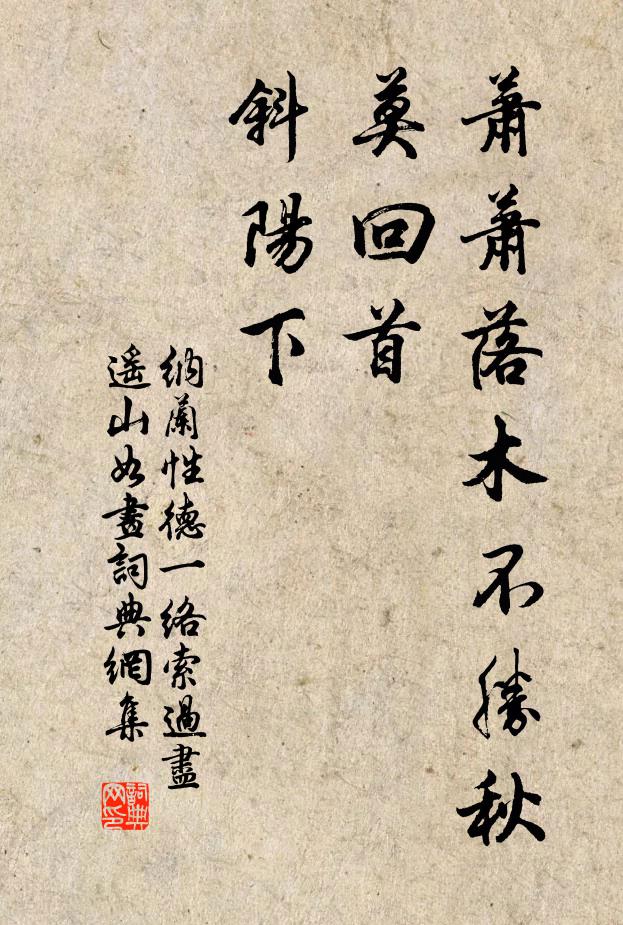 蕭蕭落木不勝秋
莫回首
斜陽下
納蘭性德一絡索過盡
遥山如畫詞典網集
詞典
网印